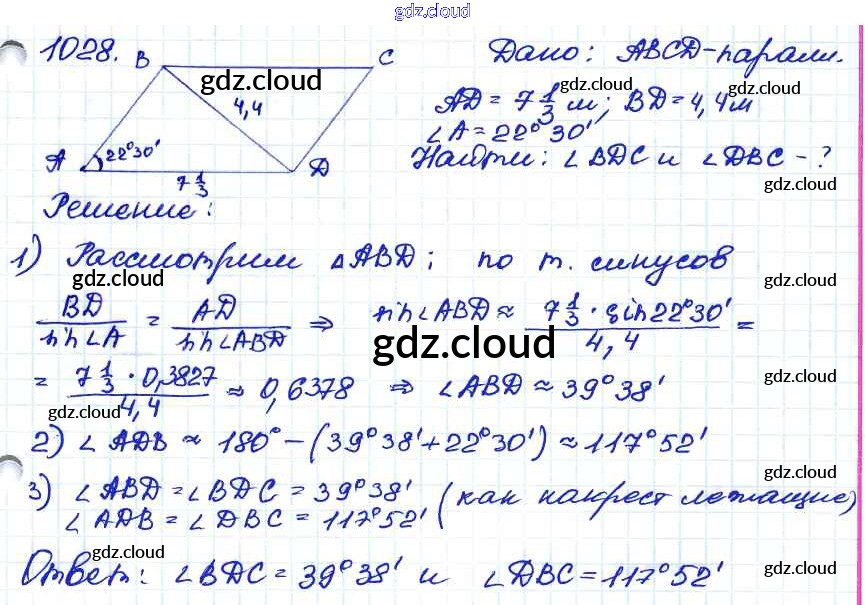 gdz.cloud
1028.
B C
gdz.cloud
4,4
A 22°30' D
7 1/3
Дано: ABCD-парал.
gdz.cloud
AD = 7 1/3 м; BD = 4,4м
gdz.cloud
∠A = 22°30'
Найти: ∠BDC и ∠DBC - ?
gdz.cloud
Решение:
1) Рассмотрим △ABD; по т. синусов
gdz.cloud gdz.cloud
BD/sin∠A = AD/sin∠ABD ⇒ sin∠ABD ≈ 7 1/3 · sin22°30'/4,4 =
gdz.cloud
= 7 1/3 · 0,3827/4,4 ≈ 0,6378 ⇒ ∠ABD ≈ 39°38'
gdz.cloud gdz.cloud
2) ∠ADB ≈ 180° - (39°38' + 22°30') ≈ 117°52'
gdz.cloud
3) ∠ABD = ∠BDC = 39°38' (как накрест лежащие)
∠ADB = ∠DBC = 117°52'
gdz.cloud gdz.cloud
Ответ: ∠BDC = 39°38' и ∠DBC = 117°52'
gdz.cloud gdz.cloud